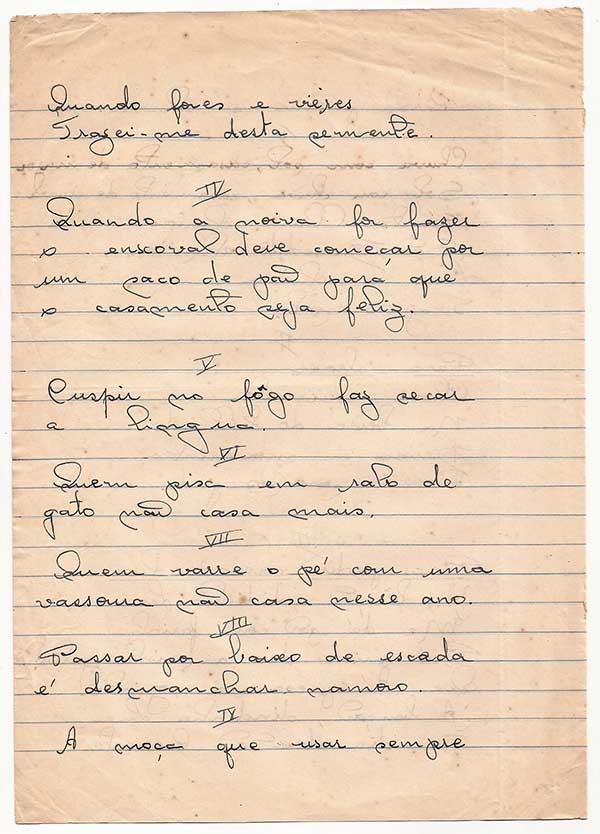 Quando fores e viéres
Trazei-me desta semente.
IV
Quando a noiva for fazer
o enxoval deve começar por
um saco de pão para que
o casamento seja feliz.
V
Cuspir no fôgo faz secar
a lingua.
VI
Quem pisa em rabo de
gato não casa mais.
VII
Quem varre o pé com uma
vassoura não casa nesse ano.
VIII
Passar por baixo de escada
é desmanchar namoro.
IV
A moça que usar sempre